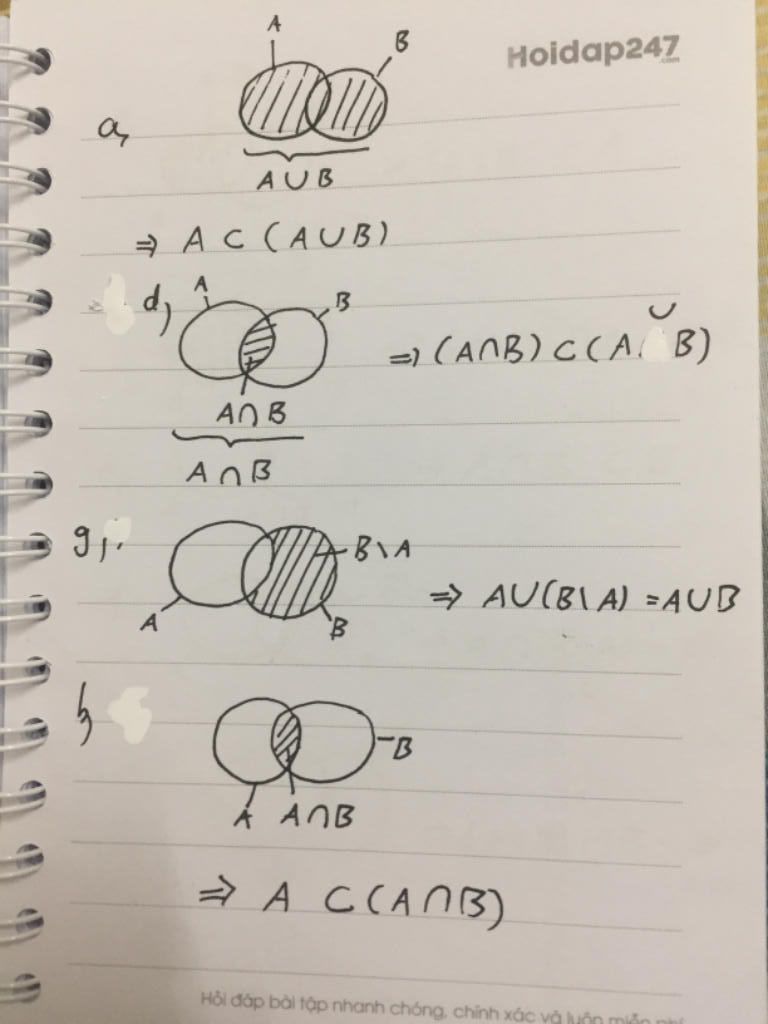 Hoidap247
.com
A
B
a,
A ∪ B
⇒ A ⊂ (A ∪ B)
d)
A
B
⇒ (A∩B) ⊂ (A ∪ B)
A∩B
A ∩ B
g,
B\A
A
B
⇒ A∪(B\A) = A∪B
h)
B
A
A∩B
⇒ A ⊂ (A∩B)
Hỏi đáp bài tập nhanh chóng, chính xác và luôn miễn phí